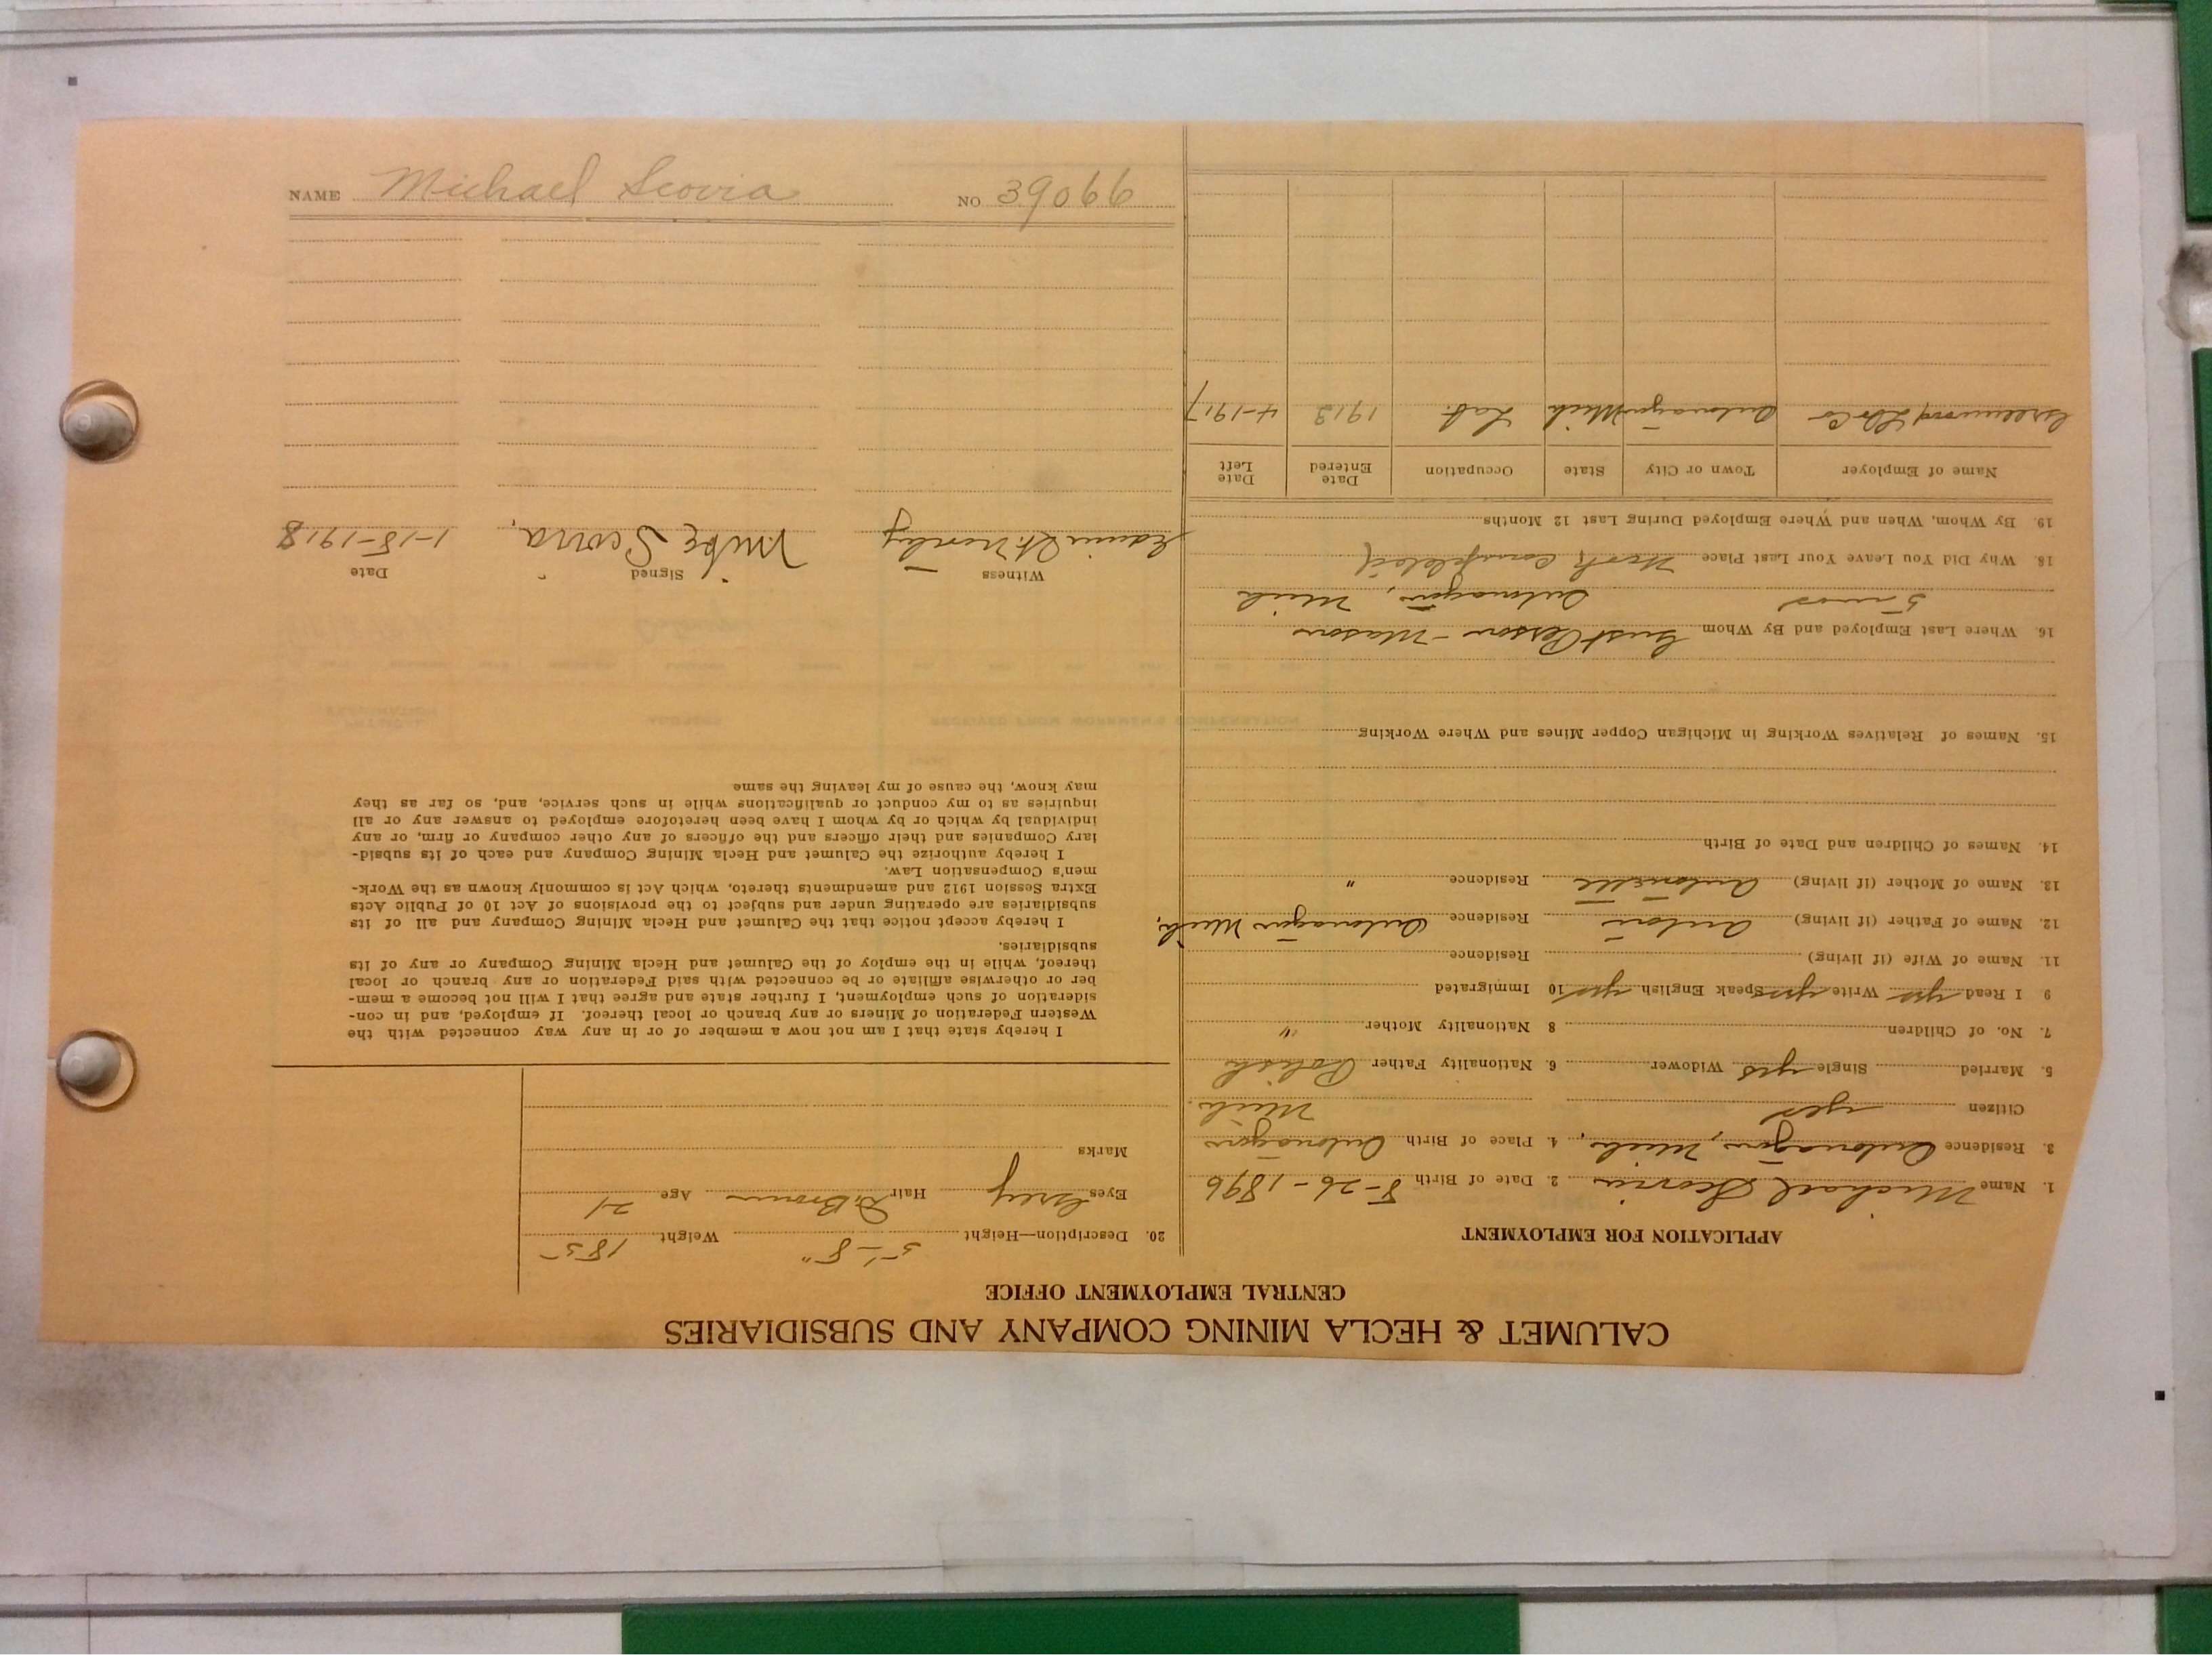 NAME Michael Scovia NO 39066
CALUMET & HECLA MINING COMPANY AND SUBSIDIARIES
CENTRAL EMPLOYMENT OFFICE
APPLICATION FOR EMPLOYMENT
1. Name Michael Scovia 2. Date of Birth 8-26-1896
3. Residence Ontonagon, Mich. 4. Place of Birth Ontonagon
Citizen yes Mich.
5. Married Single yes Widower 6. Nationality Father Polish
7. No. of Children 8 Nationality Mother "
9 I Read yes Write yes Speak English yes 10 Immigrated
11. Name of Wife (if living) Residence
12. Name of Father (if living) Anton Residence Ontonagon Mich.
13. Name of Mother (if living) Antonette Residence "
14. Names of Children and Date of Birth
15. Names of Relatives Working in Michigan Copper Mines and Where Working
16. Where Last Employed and By Whom Gust Person - Mason
5 mos Ontonagon, Mich
18. Why Did You Leave Your Last Place Work Completed
19. By Whom, When and Where Employed During Last 12 Months
Name of Employer Town or City State Occupation Date Entered Date Left
Greenwood Lbr Co Ontonagon Mich Mich Lab. 1913 4-1917
20. Description—Height 5'-8" Weight 185
Eyes Grey Hair D. Brown Age 21
Marks
I hereby state that I am not now a member of or in any way connected with the
Western Federation of Miners or any branch or local thereof. If employed, and in con-
sideration of such employment, I further state and agree that I will not become a mem-
ber or otherwise affiliate or be connected with said Federation or any branch or local
thereof, while in the employ of the Calumet and Hecla Mining Company or any of its
subsidiaries.
I hereby accept notice that the Calumet and Hecla Mining Company and all of its
subsidiaries are operating under and subject to the provisions of Act 10 of Public Acts
Extra Session 1912 and amendments thereto, which Act is commonly known as the Work-
men's Compensation Law.
I hereby authorize the Calumet and Hecla Mining Company and each of its subsid-
iary Companies and their officers and the officers of any other company or firm, or any
individual by which or by whom I have been heretofore employed to answer any or all
inquiries as to my conduct or qualifications while in such service, and, so far as they
may know, the cause of my leaving the same
Witness Signed Date
Edwin Mike Scovia, 1-18-1918